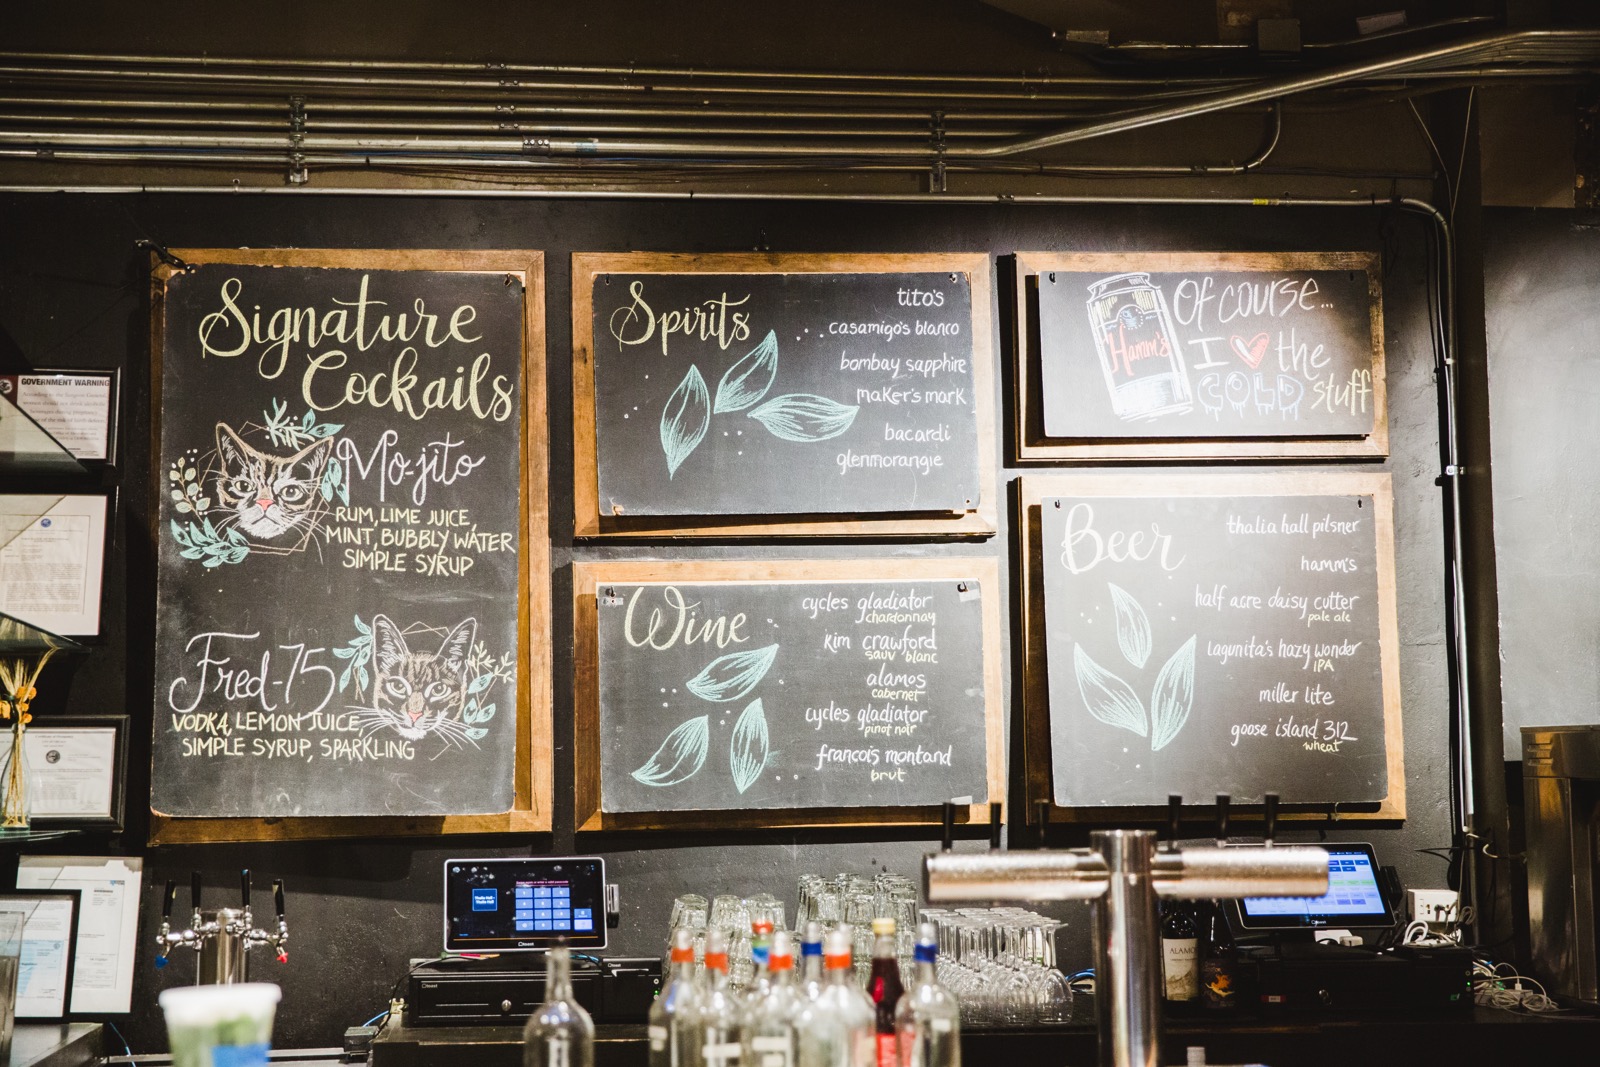 Signature
Cockails
Mo-jito
RUM, LIME JUICE,
MINT, BUBBLY WATER
SIMPLE SYRUP
Fred-75
VODKA, LEMON JUICE,
SIMPLE SYRUP, SPARKLING
Spirits
tito's
casamigo's blanco
bombay sapphire
maker's mark
bacardi
glenmorangie
Wine
cycles gladiator
chardonnay
kim crawford
sauv blanc
alamos
cabernet
cycles gladiator
pinot noir
francois montand
brut
Of course...
I ❤ the
COLD stuff
Hamm's
Beer
thalia hall pilsner
hamm's
half acre daisy cutter
pale ale
lagunita's hazy wonder
IPA
miller lite
goose island 312
wheat
GOVERNMENT WARNING
toast
ALAMOS